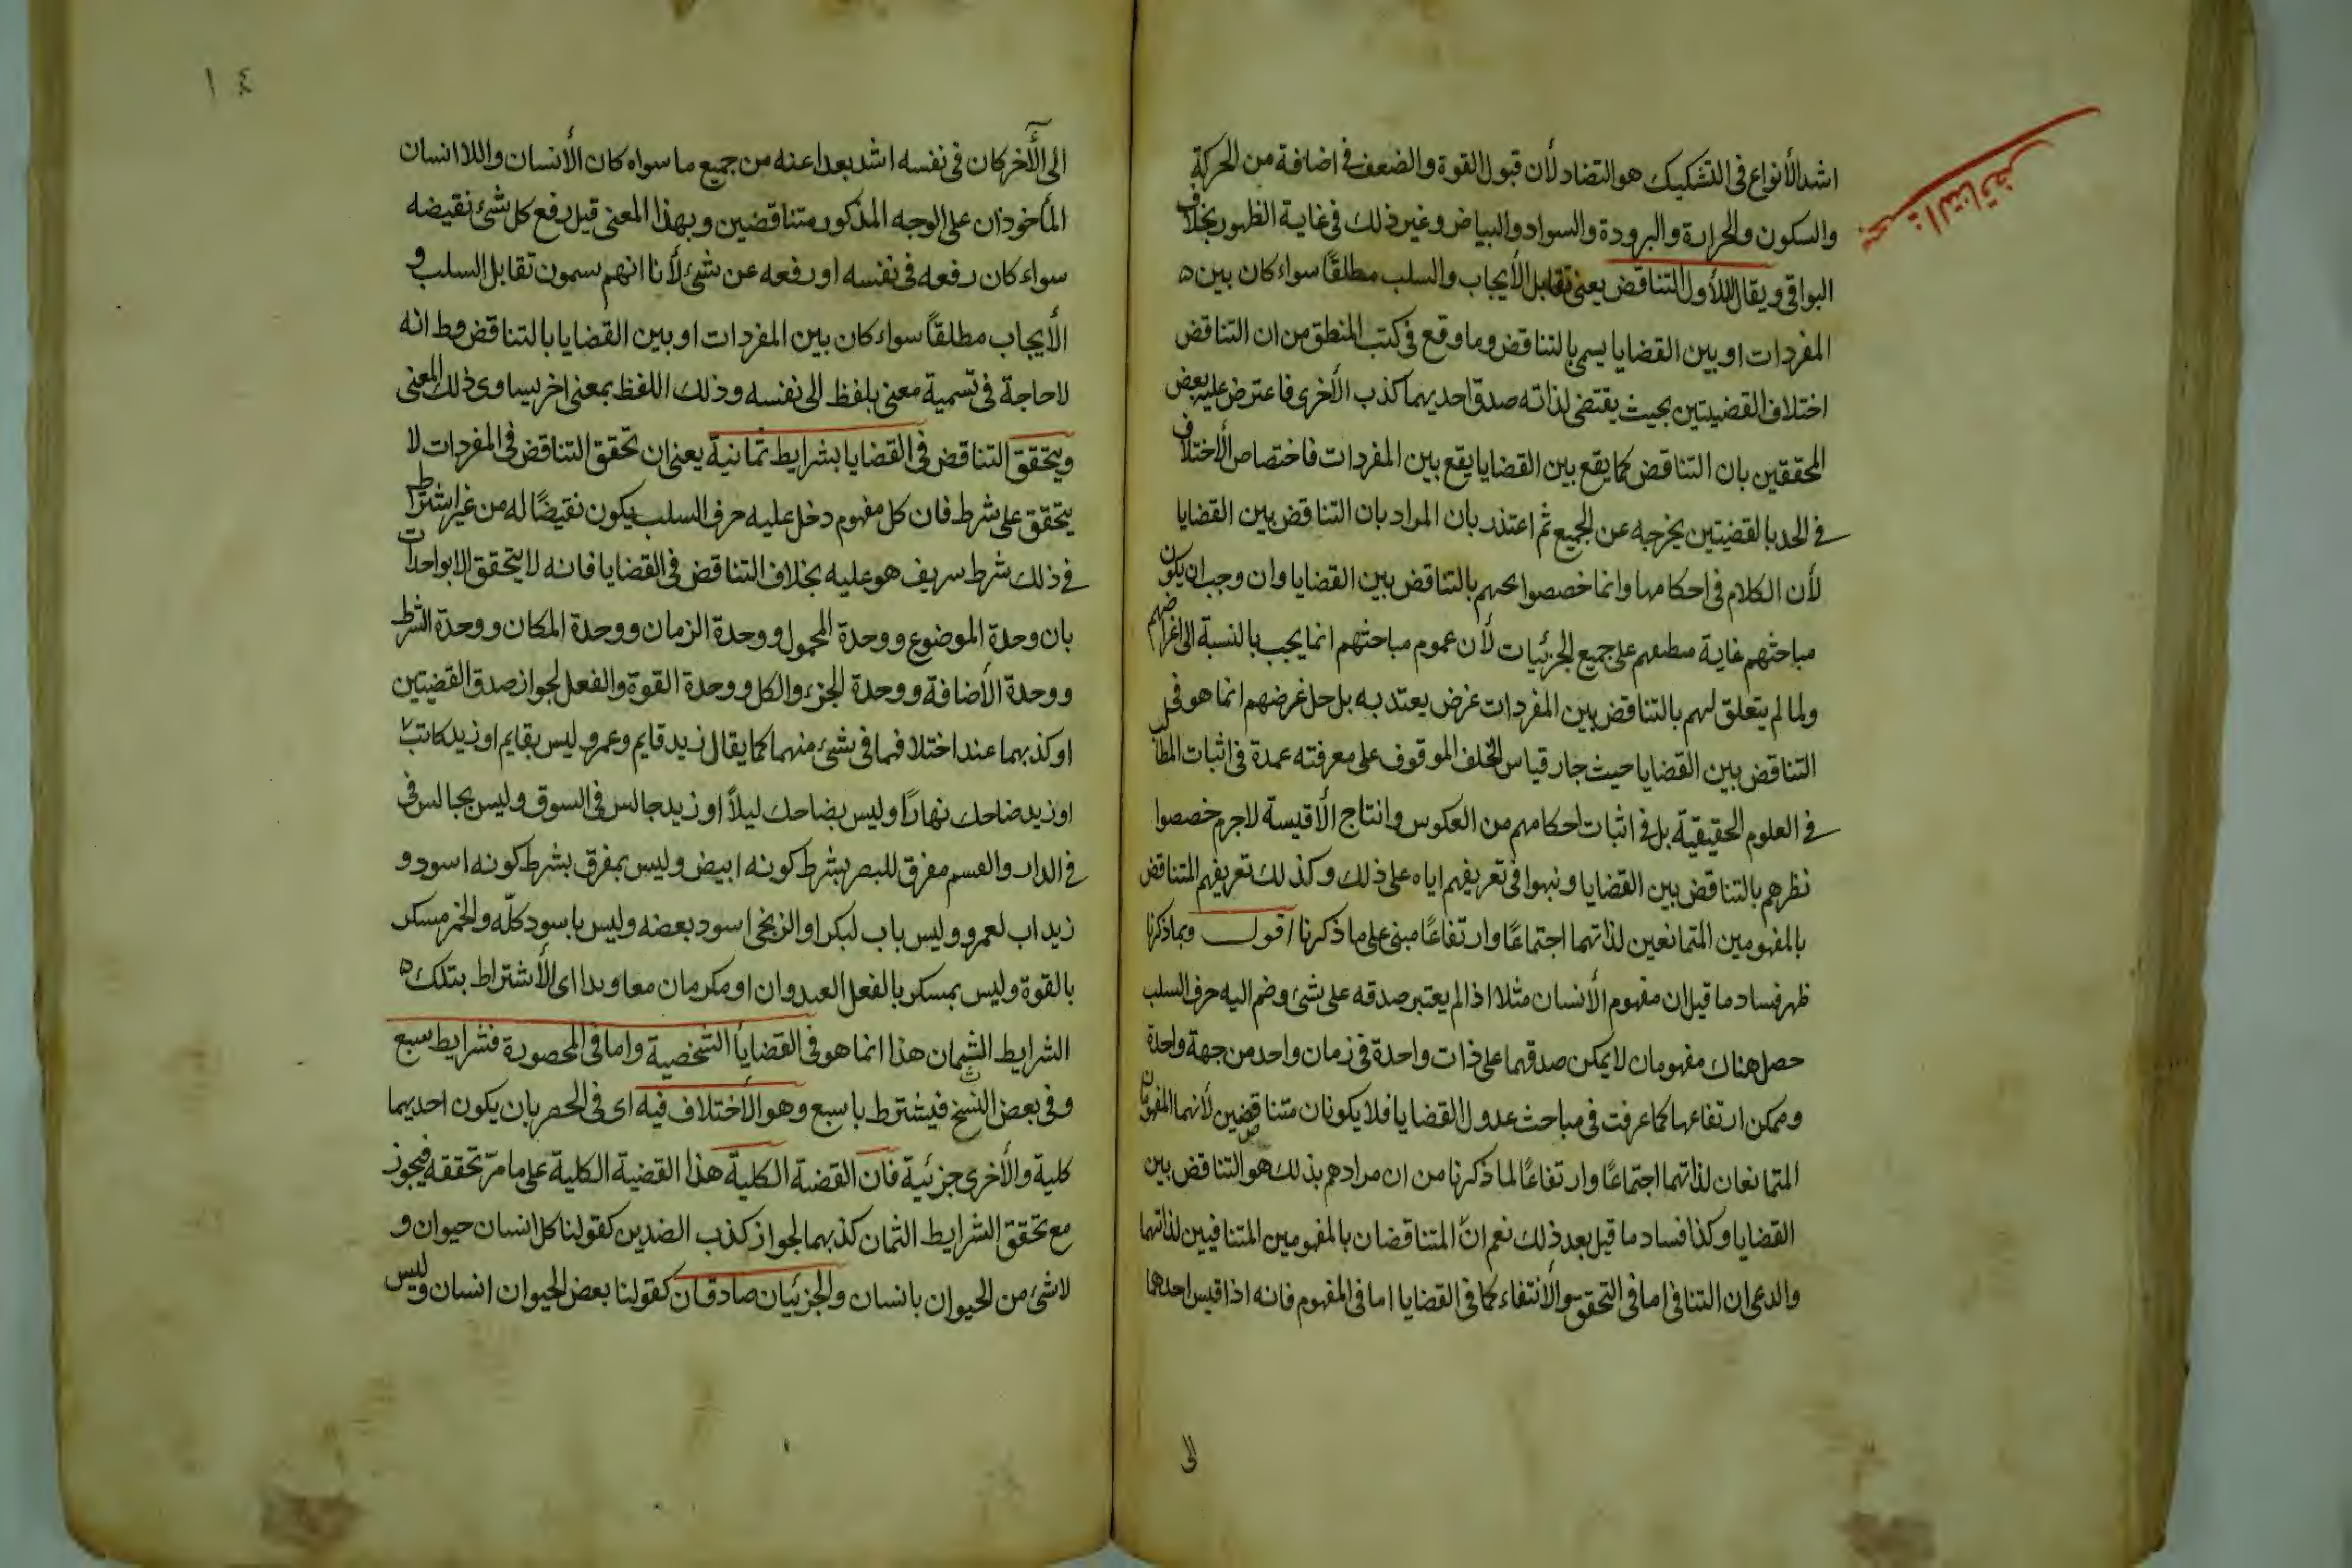 مبحث التناقض
اشد الأنواع فى التشكيك هو التضاد لأن قبول القوة والضعف فى اضافة من الحركة
والسكون والحرارة والبرودة والسواد والبياض وغير ذلك فى غاية الظهور بخلاف
البواقى ويقال للأول التناقض يعنى تقابل الأيجاب والسلب مطلقًا سواء كان بين
المفردات او بين القضايا يسمى بالتناقض وما وقع فى كتب المنطق من ان التناقض
اختلاف القضيتين بحيث يقتضى لذاته صدق احديهما كذب الأخرى فاعترض عليه بعض
المحققين بان التناقض كما يقع بين القضايا يقع بين المفردات فاختصاص الأختلاف
فى الحد بالقضيتين يخرجه عن الجميع ثم اعتذر بان المراد بان التناقض بين القضايا
لأن الكلام فى احكامها وانما خصصوا بحثهم بالتناقض بين القضايا وان وجب ان يكون
مباحثهم غاية على جميع الجزئيات لأن عموم مباحثهم انما يجب بالنسبة الى اغراضهم
ولما لم يتعلق لهم بالتناقض بين المفردات غرض يعتد به بل جل غرضهم انما هو فى
التناقض بين القضايا حيث جار قياس الخلف الموقوف على معرفته عمدة فى اثبات المطالب
فى العلوم الحقيقية بل فى اثبات احكامهم من العكوس وانتاج الأقيسة لاجرم خصصوا
نظرهم بالتناقض بين القضايا ونبهوا فى تعريفهم اياه على ذلك وكذلك تعريفهم المتناقض
بالمفهومين المتمانعين لذاتهما اجتماعًا وارتفاعًا مبنى على ما ذكرنا اقول وبما ذكرنا
ظهر فساد ما قيل ان مفهوم الأنسان مثلا اذا لم يعتبر صدقه على شئ وضم اليه حرف السلب
حصل هناك مفهومان لا يمكن صدقهما على ذات واحدة فى زمان واحد من جهة واحدة
ويمكن ارتفاعهما كما عرفت فى مباحث عدول القضايا فلا يكونان متناقضين لأنهما المفهومان
المتمانعان لذاتهما اجتماعًا وارتفاعًا لما ذكرنا من ان مرادهم بذلك هو التناقض بين
القضايا وكذا فساد ما قيل بعد ذلك نعم انّ المتناقضان بالمفهومين المتنافيين لذاتهما
والدعى ان التنافى اما فى التحقق والأنتفاء كما فى القضايا اما فى المفهوم فانه اذا قيس احدهما
الى
١٤
الى الأخر كان فى نفسه اشد بعدا عنه من جميع ما سواه كان الأنسان واللاانسان
المأخوذان على الوجه المذكور متناقضين وبهذا المعنى قيل رفع كل شئ نقيضه
سواء كان رفعه فى نفسه او رفعه عن شئ لأنا انهم يسمون تقابل السلب و
الأيجاب مطلقاً سواء كان بين المفردات او بين القضايا بالتناقض وظ انه
لا حاجة فى تسمية معنى بلفظ الى نفسه وذلك اللفظ بمعنى اخر يساوى ذلك المعنى
ويتحقق التناقض فى القضايا بشرايط ثمانية يعنى ان تحقق التناقض فى المفردات لا
يتحقق على شرط فان كل مفهوم دخل عليه حرف السلب يكون نقيضًا له من غير اشتراط
فى ذلك شرط هو عليه بخلاف التناقض فى القضايا فانه لا يتحقق الا بواحدات
بان وحدة الموضوع ووحدة المحمول ووحدة الزمان ووحدة المكان ووحدة الشرط
ووحدة الأضافة ووحدة الجزء والكل ووحدة القوة والفعل لجواز صدق القضيتين
او كذبهما عند اختلافهما فى شئ منهما كما يقال زيد قايم وعمرو ليس بقايم او زيد كاتب
او زيد ضاحك نهارًا وليس بضاحك ليلاً او زيد جالس فى السوق وليس بجالس فى
فى الدار والقسم مفرق للبصر بشرط كونه ابيض وليس بمفرق بشرط كونه اسود و
زيد اب لعمرو وليس باب لبكر او الزنجى اسود بعضه وليس باسود كلّه والخمر مسكر
بالقوة وليس بمسكر بالفعل معا وبدا اى الأشتراط بتلك
الشرايط الثمان هذا انما هو فى القضايا الشخصية واما فى المحصورة فشرايط سبع
وفى بعض النسخ فيشترط باسبع وهو الأختلاف فيه اى فى الحصر بان يكون احديهما
كلية والأخرى جزئية فان القضية الكلية هذا القضية الكلية على ما مرّ تحققه فيجوز
مع تحقق الشرايط الثمان كذبهما لجواز كذب الضدين كقولنا كل انسان حيوان و
لا شئ من الحيوان بانسان والجزئيان صادقان كقولنا بعض الحيوان انسان وليس